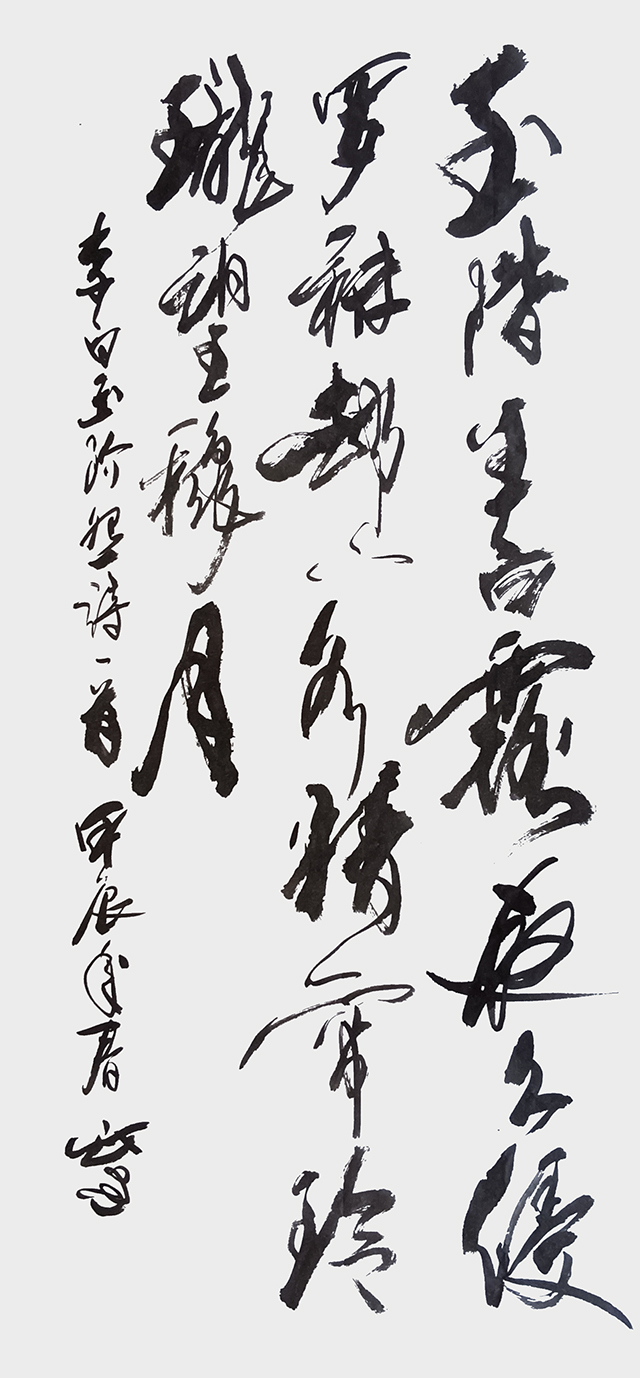 玉階生白露夜久侵
罗袜却下水精帘玲
瓏望秋月
李白玉阶怨诗一首 甲辰年春